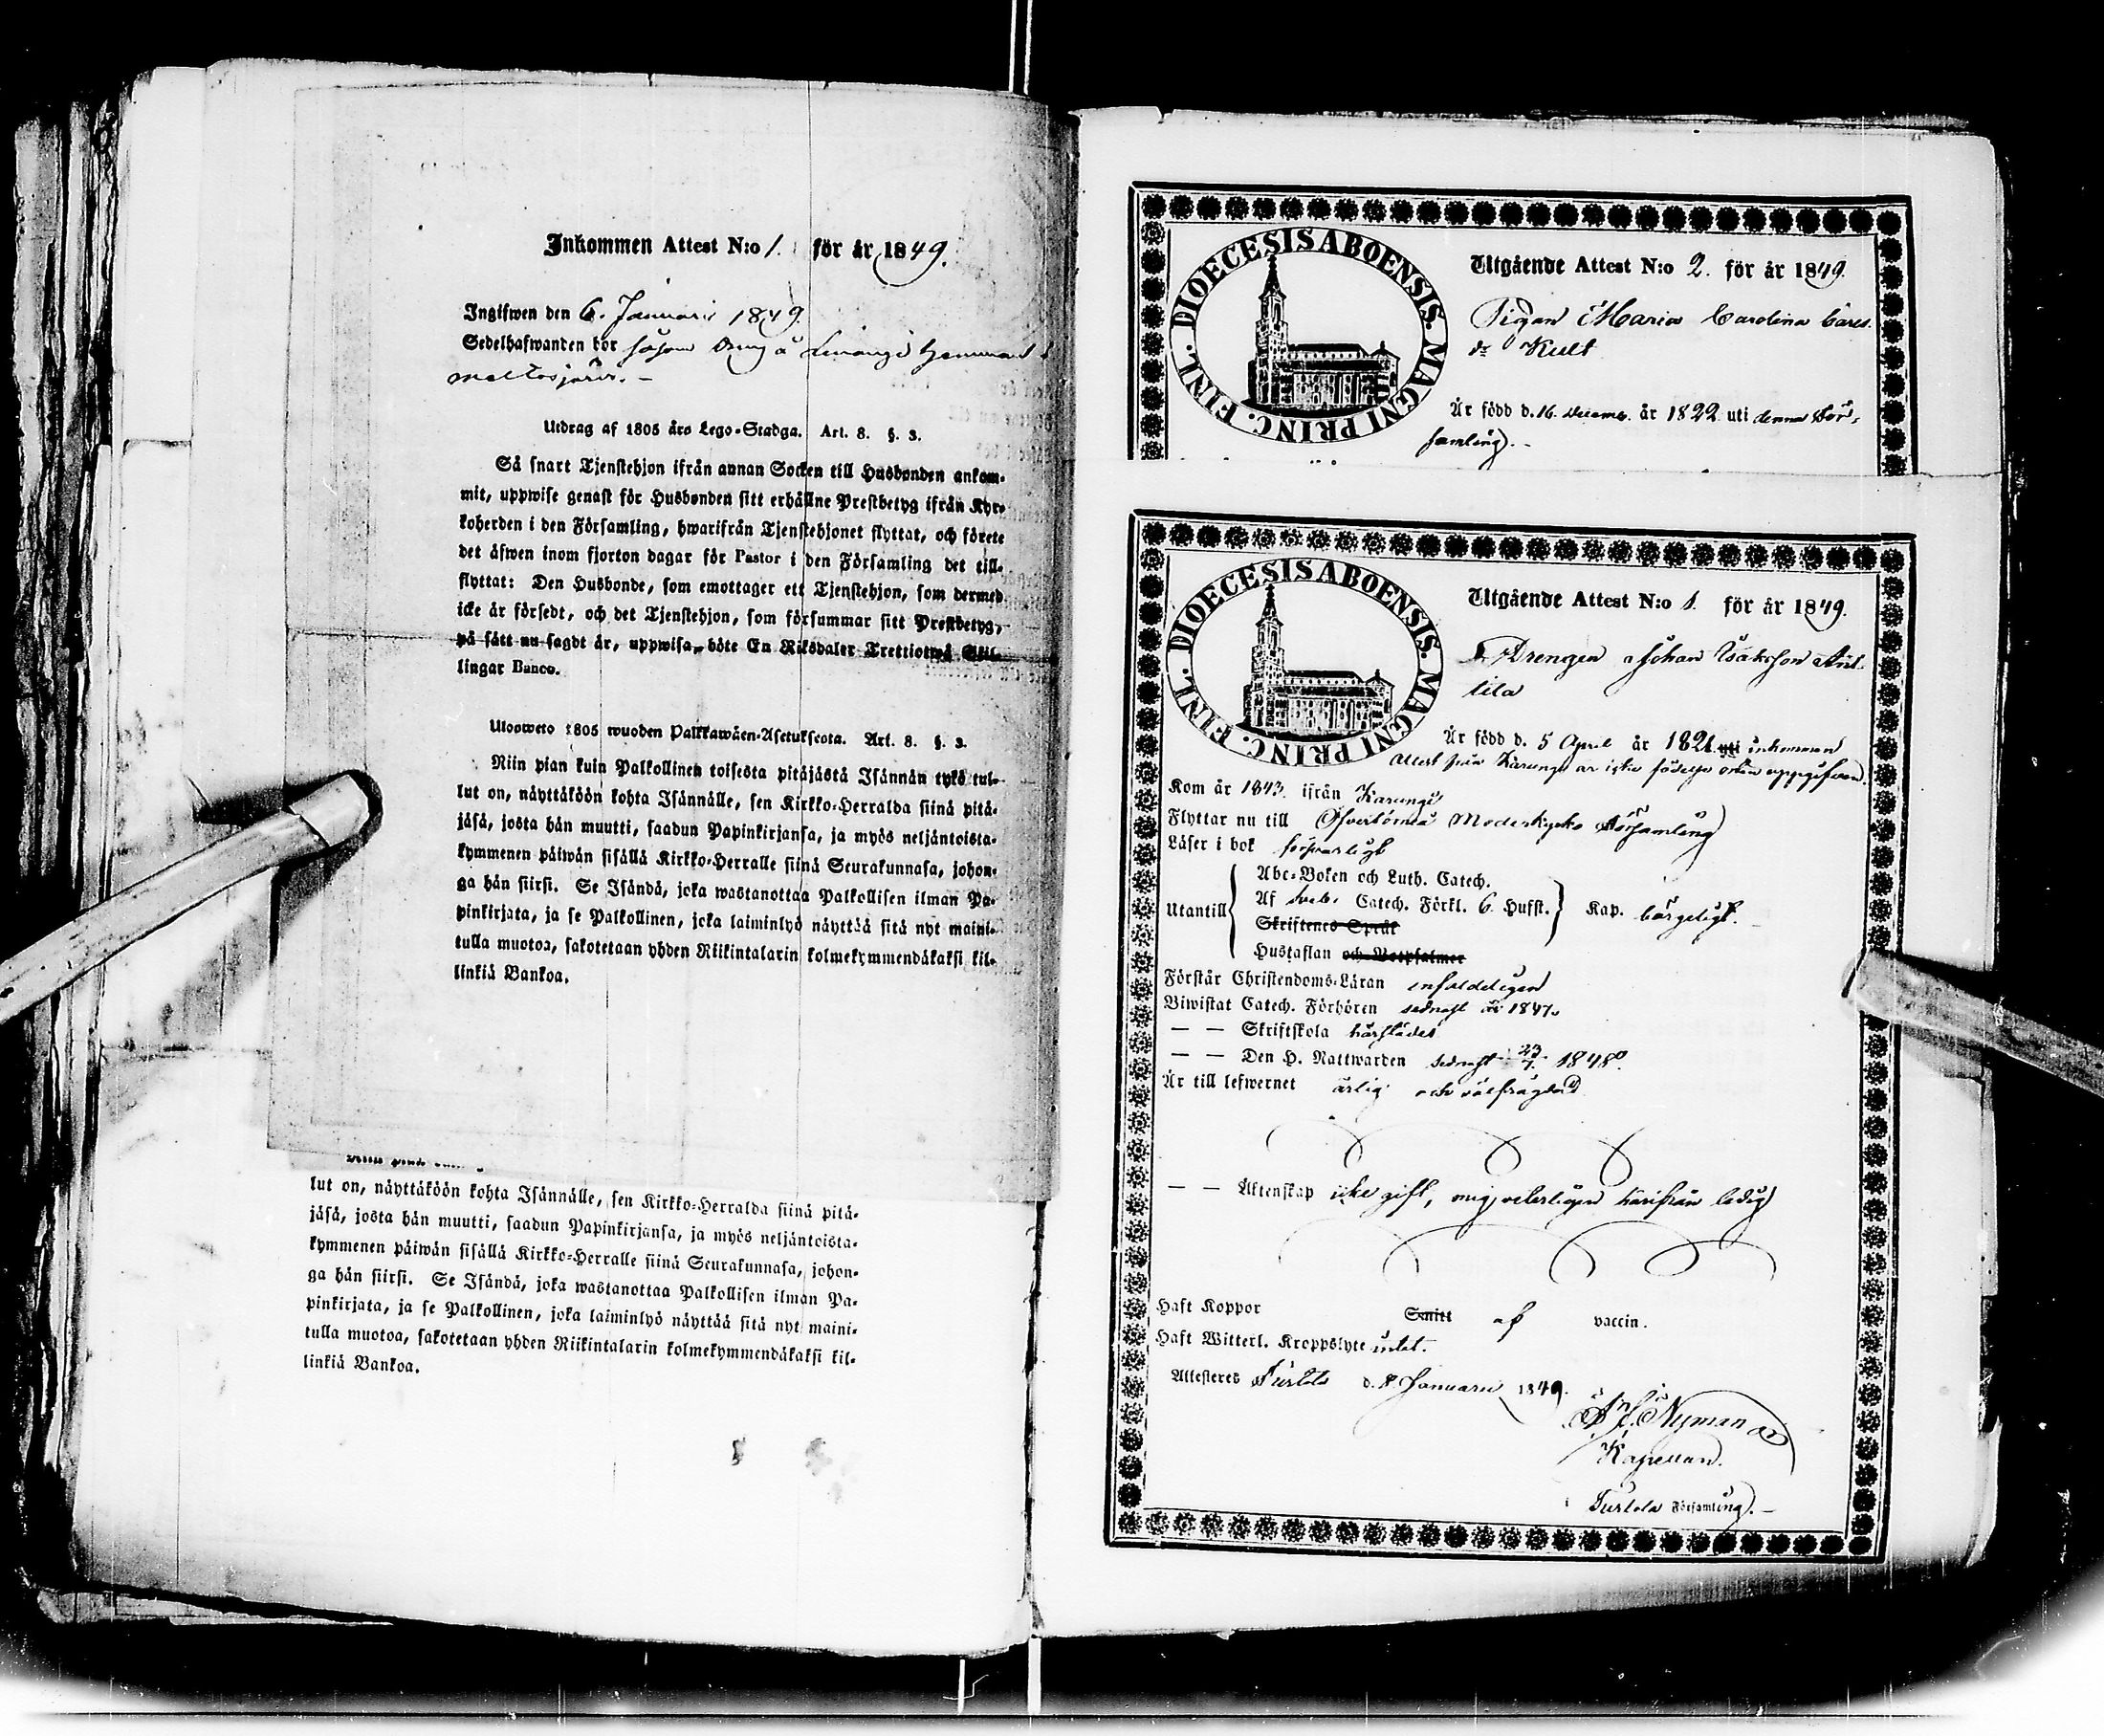 Inkommen Attest N:o 1. för år 1849.
Ingifwen den 6. Januarii 1849.
Sedelhafwanden bor såsom dräng å Hemman i
Meltosjärvi. –
Utdrag af 1805 års Lego-Stadga. Art. 8. §. 3.
Så snart Tjenstehjon ifrån annan Socken till Husbonden ankom-
mit, uppwise genast för Husbonden sitt erhållne Prestbetyg ifrån Kyr-
koherden i den Församling, hwarifrån Tjenstehjonet flyttat, och förete
det åfwen inom fjorton dagar för Pastor i den Församling det till-
flyttat: Den Husbonde, som emottager ett Tjenstehjon, som dermed
icke är försedt, och det Tjenstehjon, som försummar sitt Prestbetyg,
på sätt nu sagdt är, uppwisa, böte En Riksdaler Trettiotwå Skil-
lingar Banco.
Ulosweto 1805 wuoden Palkkawäen-Asetuksesta. Art. 8. §. 3.
Niin pian kuin Palkollinen toisesta pitäjästä Isännän tykö tul-
lut on, näyttäköön kohta Isännälle, sen Kirkko-Herralda siinä pitä-
jäsä, josta hän muutti, saadun Papinkirjansa, ja myös neljäntoista-
kymmenen päiwän sisällä Kirkko-Herralle siinä Seurakunnasa, johon-
ga hän siirsi. Se Isändä, joka wastanottaa Palkollisen ilman Pa-
pinkirjata, ja se Palkollinen, joka laiminlyö näyttää sitä nyt maini-
tulla muotoa, sakotetaan yhden Riikintalarin kolmekymmendäkaksi kil-
linkiä Bankoa.
lut on, näyttäköön kohta Isännälle, sen Kirkko-Herralda siinä pitä-
jäsä, josta hän muutti, saadun Papinkirjansa, ja myös neljäntoista-
kymmenen päiwän sisällä Kirkko-Herralle siinä Seurakunnasa, johon-
ga hän siirsi. Se Isändä, joka wastanottaa Palkollisen ilman Pa-
pinkirjata, ja se Palkollinen, joka laiminlyö näyttää sitä nyt maini-
tulla muotoa, sakotetaan yhden Riikintalarin kolmekymmendäkaksi kil-
linkiä Bankoa.
DIOECESIS ABOENSIS. MAGNI PRINC. FINL.
Utgående Attest N:o 2. för år 1849.
Pigan Maria Carolina Carls
dr Kult
Är född d. 16. Decemb. år 1822 uti denna För-
samling. –
DIOECESIS ABOENSIS. MAGNI PRINC. FINL.
Utgående Attest N:o 1. för år 1849.
Drengen Johan Isaksson Ant-
tila
Är född d. 5 April år 1821 uti inkommen
Attest från Karungi är icke födelse orten uppgifven.
Kom år 1843. ifrån Karungi
Flyttar nu till Öfvertorneå Moderkyrko Församling
Läser i bok försvarligt
Utantill Abc-Boken och Luth. Catech.
Af Sveb. Catech. Förkl. 6 Hufst. Kap. börgeligt. –
Skriftenes Språk
Hustaflan och Botpsalmer
Förstår Christendoms-Läran enfaldeligen
Biwistat Catech. Förhören sednast år 1847.
— — Skriftskola härstädes
— — Den H. Nattwarden sednast 23/7. 1848.
Är till lefwernet ärlig och välfrägdad
— — Äktenskap icke gift, härifrån ledig
Haft Koppor Smitt af vaccin.
Haft Witterl. Kroppslyte intet.
Attesteres Turtola d. 8. Januarii 1849.
Nyman
Kapellan.
Turtola Församling. –